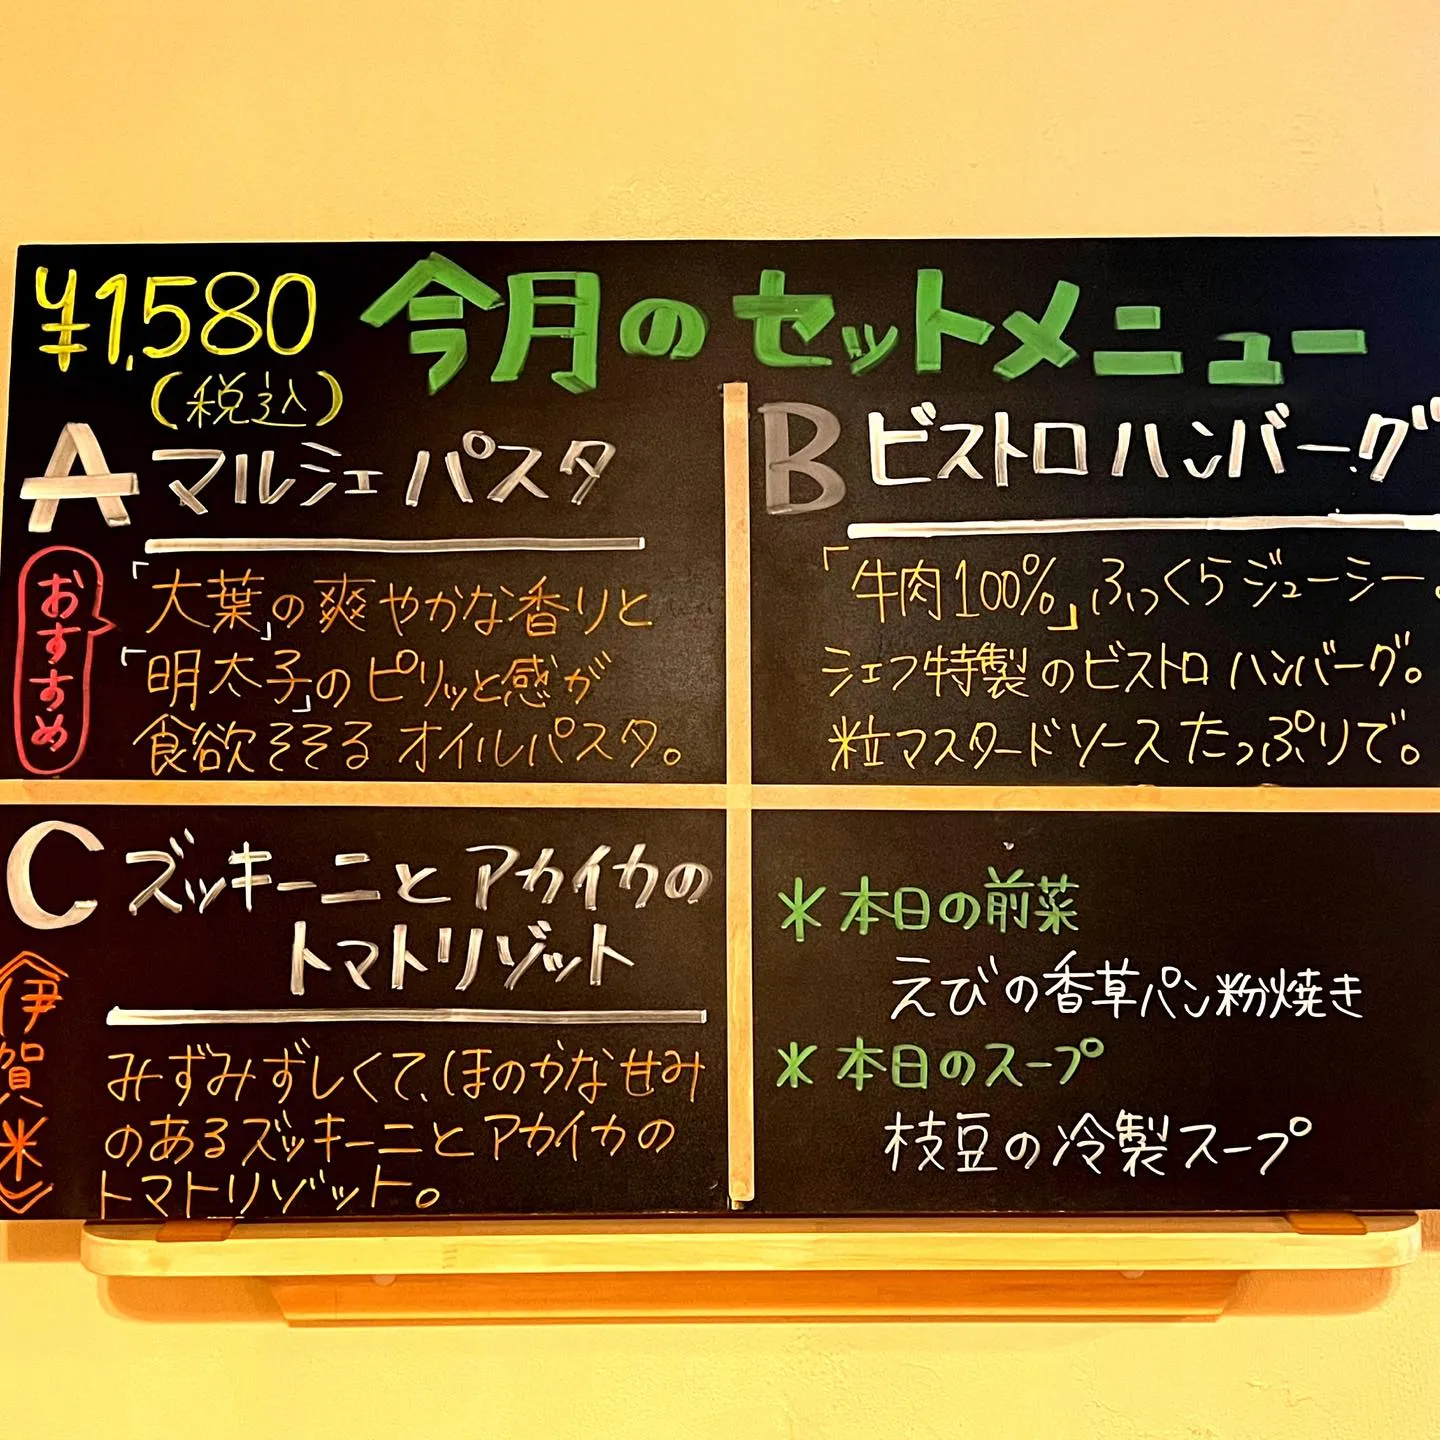 ¥1,580 今月のセットメニュー
(税込)
A マルシェパスタ
おすすめ
「大葉」の爽やかな香りと
「明太子」のピリッと感が
食欲そそるオイルパスタ。
B ビストロハンバーグ
「牛肉100%」ふっくらジューシー。
シェフ特製のビストロハンバーグ。
粒マスタードソースたっぷりで。
C ズッキーニとアカイカの
トマトリゾット
《伊賀米》
みずみずしくて、ほのかな甘み
のあるズッキーニとアカイカの
トマトリゾット。
＊本日の前菜
えびの香草パン粉焼き
＊本日のスープ
枝豆の冷製スープ